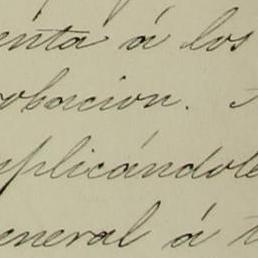 enta á los
obacion.
uplicándole
eneral á